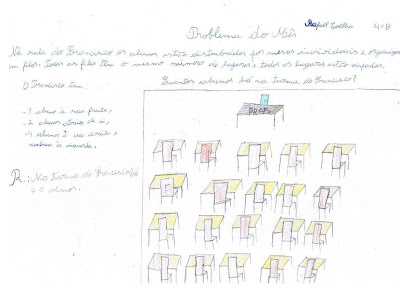 Problema do Mês
Rafael Coelho 4ºB
Na sala do Francisco os alunos estão distribuídos por mesas individuais e organizados
em filas. Todas as filas têm o mesmo número de lugares e todos os lugares estão ocupados.
Quantos alunos há na turma do Francisco?
O Francisco tem:
-1 aluno à sua frente,
-2 alunos atrás de si,
-4 alunos à sua direita,
nenhum à esquerda.
PROF.
R.: Na turma do Francisco há
20 alunos.